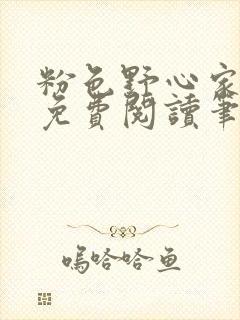 粉色野心家
免費閱讀筆
嗚哈哈鱼